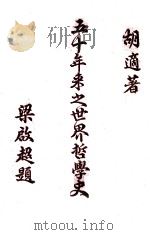 胡適著
五十年來之世界哲學史
梁啟超題
mtoou.info